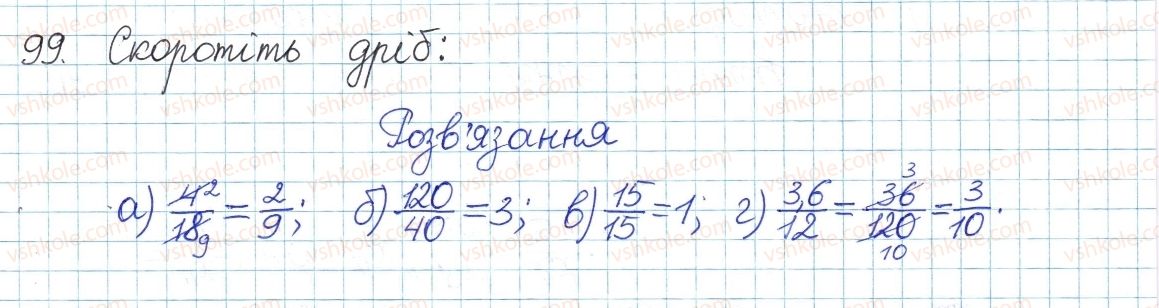 99. Скоротіть дріб:
Розв'язання
а) 4²/18₉ = 2/9; б) 120/40 = 3; в) 15/15 = 1; г) 3,6/12 = 36³/120₁₀ = 3/10.
vshkole.com